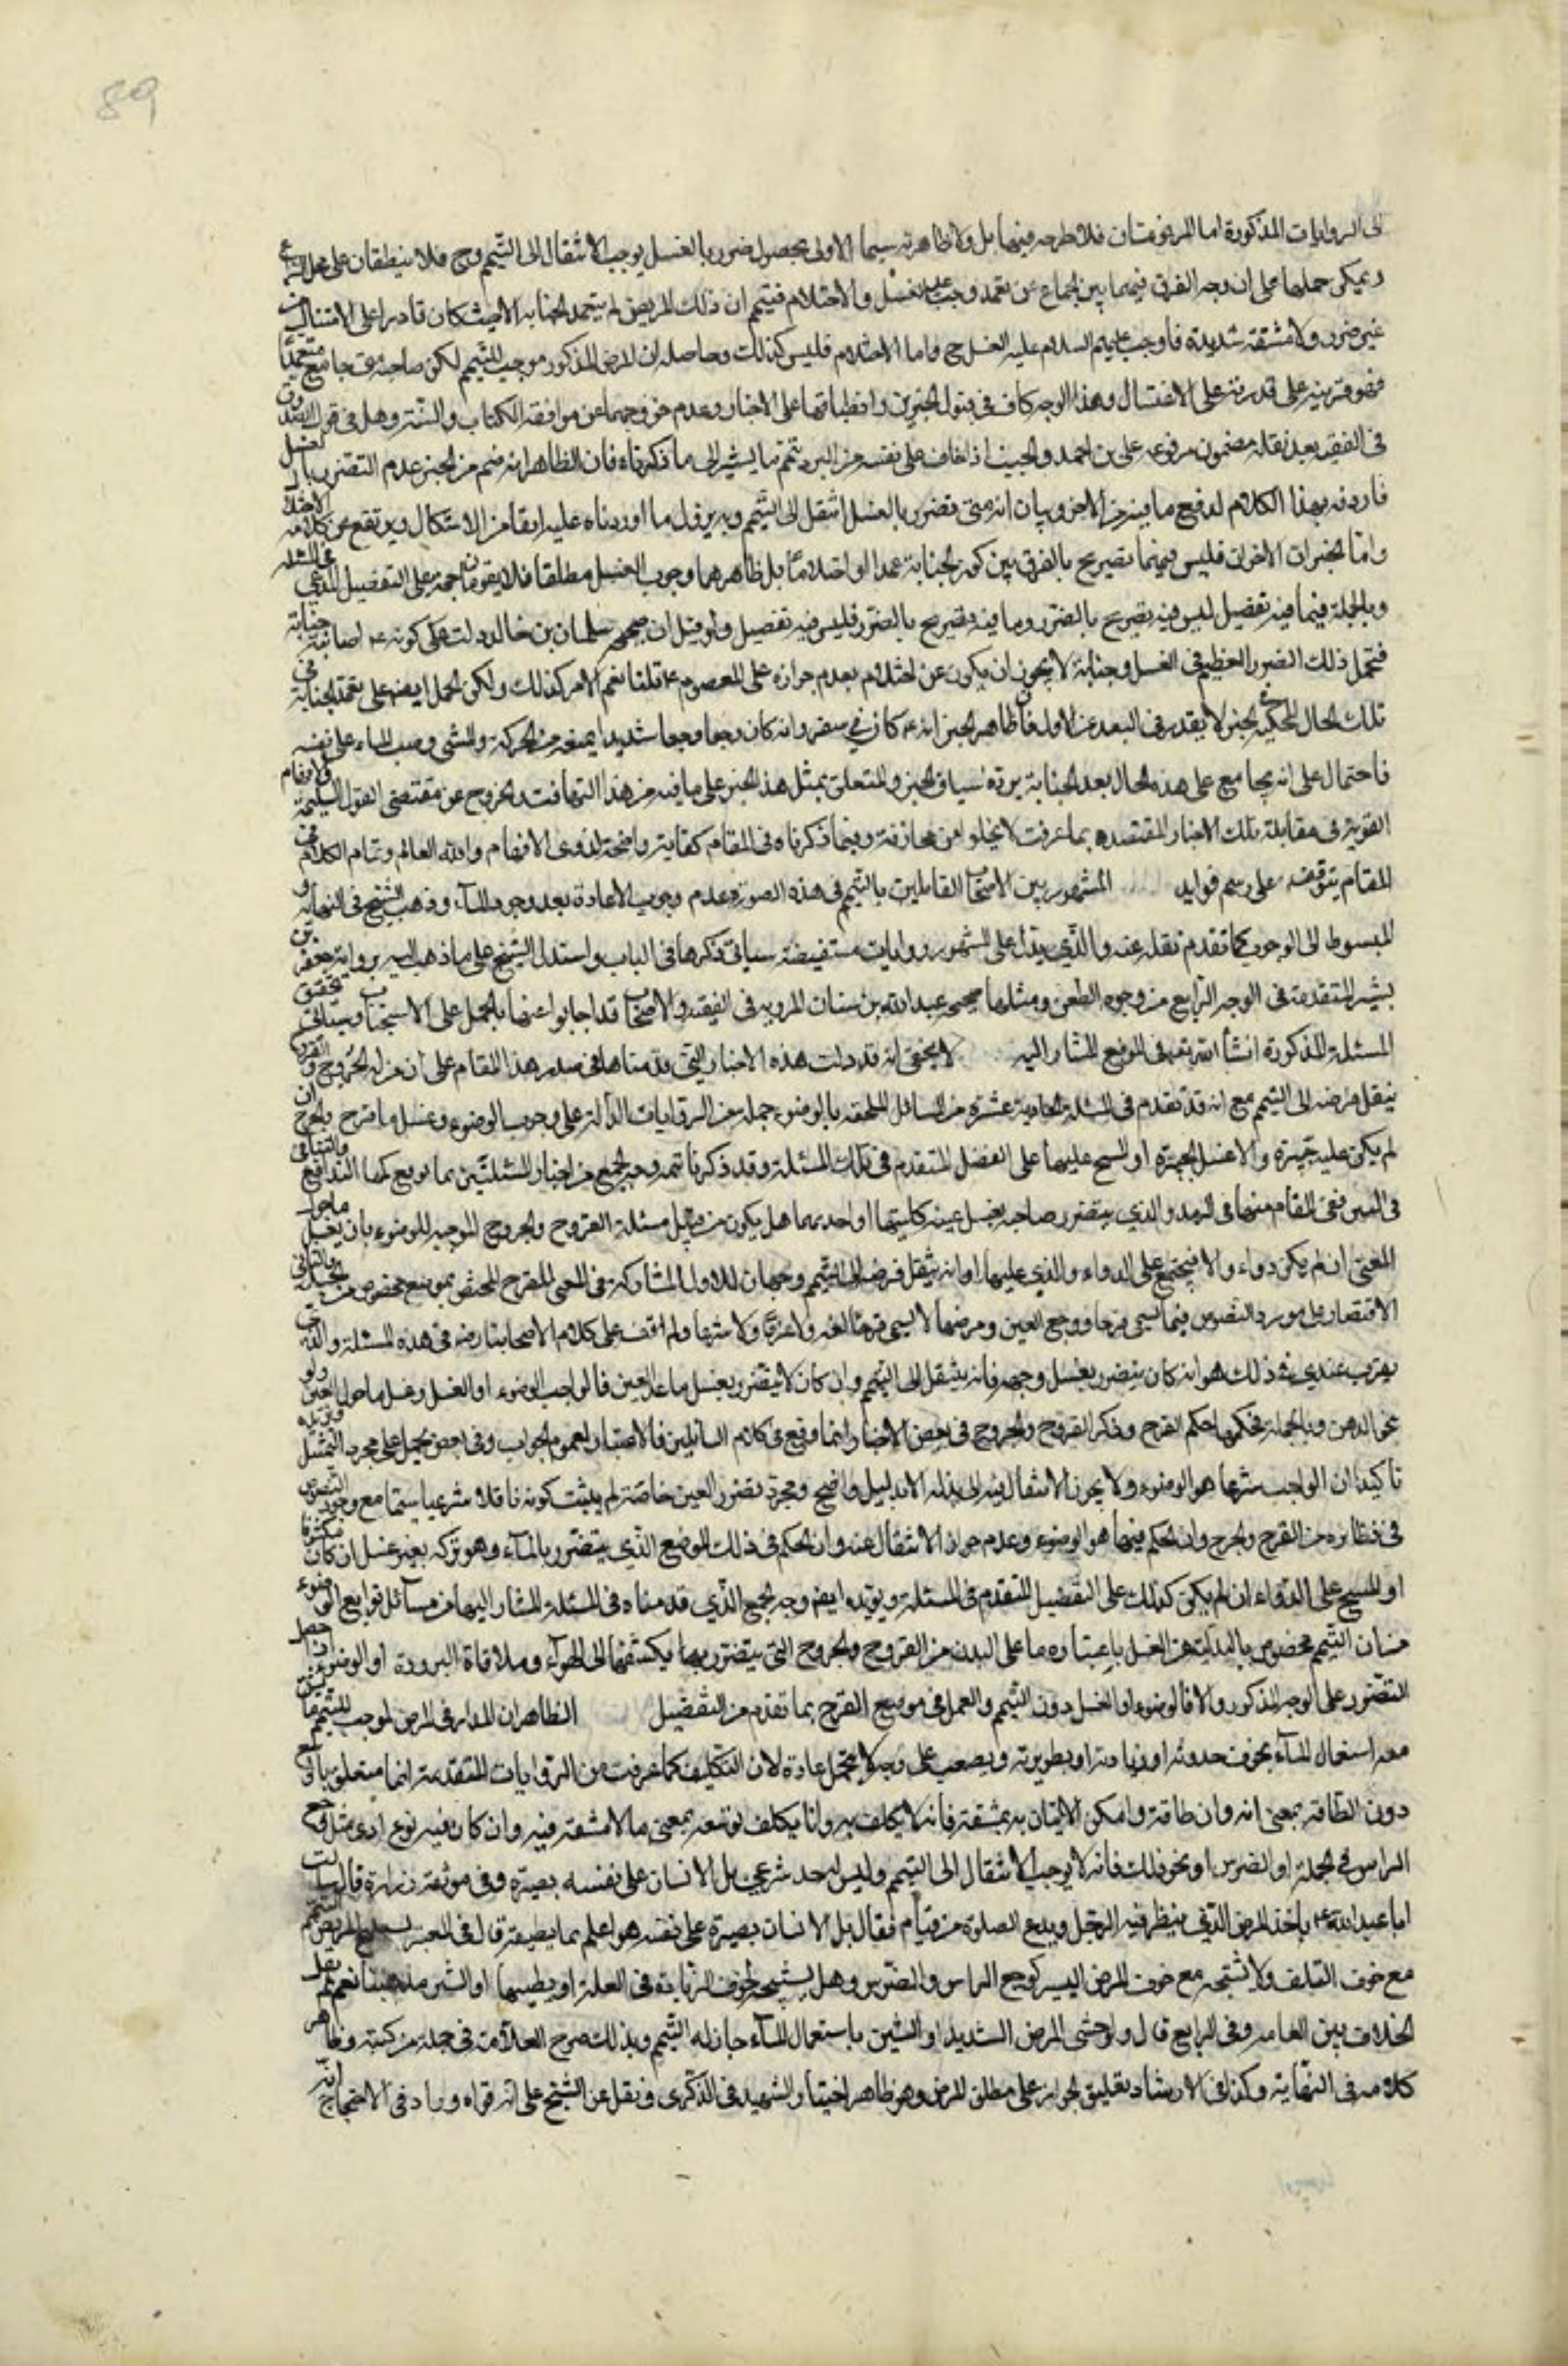 89
الى الروايات المذكورة اما المرفوعتان فلا طرحه فيهما بل ولا ظاهرته سيما الاولى بحصول ضرر بالغسل يوجب الانتقال الى التيمم وح فلا ينطبقان على محل
ويمكن حملهما على ان وجه الفرق فيهما بين الجماع عن تعمد وجب عليه الغسل والاحتلام فيتيمم ان ذلك المريض لم يتعمد الجنابة الا حيث كان قادرا على الاغتسال من
غير ضرر ولا مشقة شديدة فاوجب عليهم السلام عليه الغسل ح واما الاحتلام فليس كذلك وحاصله ان المرض المذكور موجب للتيمم لكن صاحبه متى جامع متعمدا
فهو قرينة على قدرته على الاغتسال وهذا الوجه كاف في قبول الخبرين وانطباقهما على الاخبار وعدم خروجهما عن موافقة الكتاب والسنة وهل في قول الصدوق
في الفقيه بعد نقله مضمون مرفوعة علي بن احمد والجنب اذا خاف على نفسه من البرد تيمم ما يشير الى ما ذكرناه فان الظاهر انه فهم من الخبر عدم التضرر بالغسل
فاردفه بهذا الكلام لدفع ما فيه من الاخر وبيان انه متى تضرر بالغسل انتقل الى التيمم وبه يزول ما اوردناه عليه انفا من الاشكال ويرتفع عن كلامه الاختلال
واما الخبران الاخران فليس فيهما تصريح بالفرق بين كون الجنابة عمدا او احتلاما بل ظاهرهما وجوب الغسل مطلقا فلا يقومان حجة على التفصيل المدعى في المسئلة
وبالجملة فيما فيه تفصيل ليس فيه تصريح بالضرر وما فيه تصريح بالضرر فليس فيه تفصيل ولو قيل ان صحيح سليمان بن خالد دلت على كونه ع اصابته جنابة
فتحمل ذلك الضرر العظيم في الغسل وجنابة لا يجوز ان يكون عن احتلام بعدم جوازه على المعصوم ع قلنا نعم الامر كذلك ولكن الحمل ايضا على تعمد الجنابة في
تلك الحال المحكية في الخبر لا يقدر في البعد عن الاول فان ظاهر الخبر انه ع كان في سفر وانه كان وجعا وجعا شديدا يمنعه من الحركة والمشي وصب الماء على نفسه
فاحتمال على انه يجامع على هذه الحال بعد الجنابة يرده سياق الخبر والمتعلق بمثل هذا الخبر على ما فيه من هذا التهافت والخروج عن مقتضى العقول السليمة والافهام
القوية في مقابلة تلك الاخبار المعتضدة بما عرفت لا يخلو من مجازفة وفيما ذكرناه في المقام كفاية واضحة لذوي الافهام والله العالم وتمام الكلام في
المقام يتوقف على رسم فوايد المشهور بين الاصحاب القائلين بالتيمم في هذه الصورة عدم وجوب الاعادة بعد وجود الماء وذهب الشيخ في النهاية و
المبسوط الى الوجوب كما تقدم نقله عنه والذي يدل على المشهور روايات مستفيضة سياتي ذكرها في الباب واستدل الشيخ على ما ذهب اليه برواية جعفر بن
بشير المتقدمة في الوجه الرابع من وجوه الطعن ومثلها صحيح عبدالله بن سنان المروية في الفقيه والاصحاب قد اجابوا عنها بالحمل على الاستحباب وسياتي تحقيق
المسئلة المذكورة انشا الله تعالى في الموضع المشار اليه لا يخفى انه قد دلت هذه الاخبار التي قدمناها في صدر هذا المقام على ان من له الجروح والقروح
ينتقل فرضه الى التيمم مع انه قد تقدم في المسئلة الحادية عشرة من المسائل الملحقة بالوضوء جملة من الروايات الدالة على وجوب الوضوء وغسل ما حول القرح والجرح ان
لم يكن عليه جبيرة والا غسل الجبيرة او المسح عليها على الفصل المتقدم في تلك المسئلة وقد ذكرنا ثمة وجه الجمع من اخبار المسئلتين بما يرفع عنها التدافع والتنافي
في البين فبقي المقام منهما في الرمد والذي يتضرر صاحبه بغسل عينه كلتيهما او احديهما هل يكون من قبيل مسئلة القروح والجروح الموجبة للوضوء بان يغسل ما حول
العين ان لم يكن دواء والا فيمسح على الدواء والذي عليها او انه ينتقل فرضه الى التيمم وجهان للاول المشاركة في المعنى للقرح المختص بموضع مخصوص من الجسد وللثاني
الاقتصار على مورد النصوص فيما يسمى قرحا ووجع العين ومرضها لا يسمى قرحا لغة ولا عرفا ولا شرعا ولم اقف على كلام لاصحابنا رض في هذه المسئلة والذي
يقرب عندي في ذلك هو انه كان يتضرر بغسل وجهه فانه ينتقل الى التيمم وان كان لا يتضرر بغسل ما عدا العين فالواجب الوضوء او الغسل وغسل ما حول العين ولو
نحو الدهن وبالجملة فحكمها حكم القرح وذكر القروح والجروح في بعض الاخبار انما وقع في كلام السائلين فالاعتبار بعموم الجواب وفي بعض يحمل على مجرد التمثيل
تاكيدا ان الواجب شرعا هو الوضوء ولا يجوز الانتقال منه الى بدله الا بدليل واضح ومجرد تضرر العين خاصة لم يثبت كونه ناقلا شرعيا سيما مع وجود النصوص
في نظائره من القرح والجرح وان الحكم فيها هو الوضوء وعدم جواز الانتقال عنه وان الحكم في ذلك الموضع الذي يتضرر بالماء وهو تركه بغير غسل ان كان مكشوفا
او المسح على الدواء ان لم يكن كذلك على التفصيل المتقدم في المسئلة ويؤيده ايضا وجه الجمع الذي قدمناه في المسئلة المشار اليها من مسائل توابع الوضوء
من ان التيمم مخصوص بالبدلية من الغسل باعتبار ما على البدن من القروح والجروح التي يتضرر بها بكشفها الى الهواء وملاقاة البرودة او الوضوء ان حصل
التضرر على الوجه المذكور والا فالوضوء او الغسل دون التيمم والعمل في موضع القرح بما تقدم من التفصيل الظاهر ان المدار في المرض الموجب للتيمم
معه استعمال الماء بخوف حدوثه او زيادته او بطؤ برئه ويصعب على وجه لا يتحمل عادة لان التكليف كما عرفت من الروايات المتقدمة انما متعلق بالوسع
دون الطاقة بمعنى انه وان طاقه وامكن الاتيان به بمشقة فانه لا يكلف به وانا يكلف لوسعه بمعنى ما لا مشقة فيه وان كان فيه نوع اذى مثل وجع
الراس في الجملة او الضرس او نحو ذلك فانه لا يوجب الانتقال الى التيمم وليس له حد شرعي بل الانسان على نفسه بصيرة وفي موثقة زرارة قال سالت
ابا عبدالله ع ما حد المرض الذي يفطر فيه الرجل ويدع الصلوة من قيام فقال بل الانسان بصيرة على نفسه هو اعلم بما يطيقه قال في المعتبر يستبيح المريض التيمم
مع خوف التلف ولا يستبيحه مع خوف المرض اليسير كوجع الراس والضرس وهل يستبيحه لخوف الزيادة في العلة او بطئها او الشين مذهبنا نعم ثم نقل
الخلاف بين العامة وفي الرابع قال ولو خشي المرض الشديد او الشين باستعمال الماء جاز له التيمم وبذلك صرح العلامة في جملة من كتبه وظاهر
كلامه في النهاية وكذا في الارشاد تعليق الجواز على مطلق المرض وهو ظاهر اختيار الشهيد في الذكرى ونقل عن الشيخ علي انه قواه وزاد في الاحتجاج انه